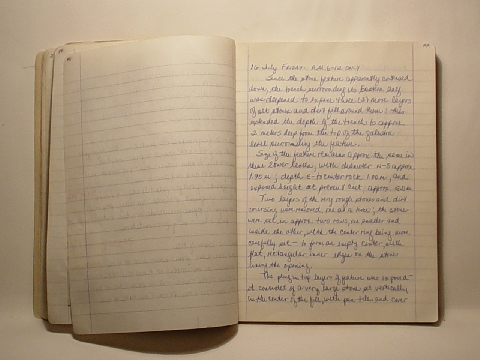 16 July FRIDAY: A.M.
Since the stone feature apparently continued
down, the trench surrounding its broken self
was deepened to expose three (3) more layers
of alt stones and dirt fill around them; this
extended the depth of the trench to approx
2 meters deep from the top of the
level surrounding the feature.
Size of the feature remains approx the same in
these lower levels, with diameter N-S approx
1.90 m; depth E- to center rock 1.10 m; and
exposed height at present
Two layers of the very rough stone and dirt
coursing were removed, one at a time; the stones
were set in approx two rows, one
inside the other, with the center ring being more
carefully set — to form an empty center, with
flat, rectangular inner edges on the stones
lining the opening.
The plug in top layers of feature was exposed
it consisted of a very large stone set vertically
in the center of the fill, with